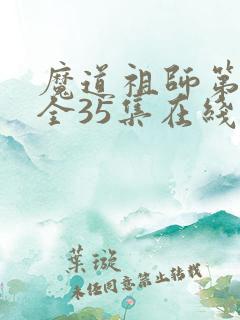 魔道祖师第
全35集在线
葉璇
未经同意禁止转载